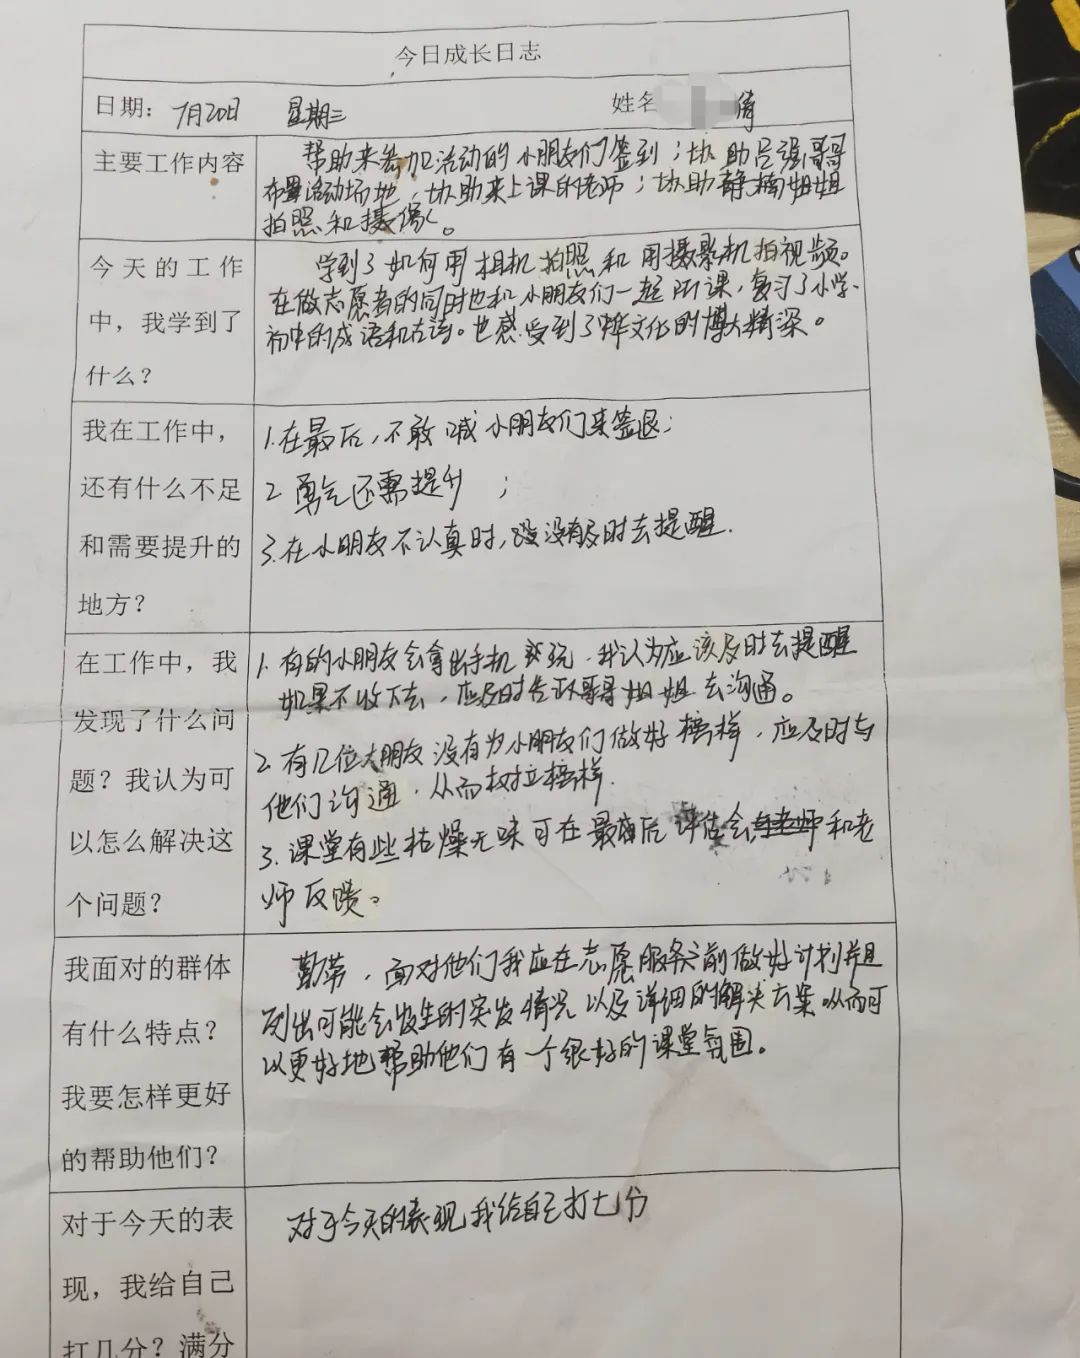 今日成长日志
日期：7月20日 星期三 姓名 倩
主要工作内容
帮助来参加活动的小朋友们签到；协助吕强哥哥
布置活动场地，协助来上课的老师；协助静楠姐姐
拍照和摄像。
今天的工作
中，我学到了
什么？
学到了如何用相机拍照和用摄影机拍视频。
在做志愿者的同时也和小朋友们一起听课，复习了小学、
初中的成语和古诗。也感受到了中华文化的博大精深。
我在工作中，
还有什么不足
和需要提升的
地方？
1.在最后，不敢喊小朋友们来签退；
2 勇气还需提升；
3.在小朋友不认真时，没有及时去提醒.
在工作中，我
发现了什么问
题？我认为可
以怎么解决这
个问题？
1.有的小朋友会拿出手机玩，我认为应该及时去提醒
如果不收下去，应及时告诉哥哥姐姐去沟通。
2.有几位大朋友没有为小朋友们做好榜样，应及时与
他们沟通，从而树立榜样.
3.课堂有些枯燥无味可在最后评估会和老
师反馈。
我面对的群体
有什么特点？
我要怎样更好
的帮助他们？
勤劳，面对他们我应在志愿服务前做好计划并且
列出可能会发生的突发情况以及详细的解决方案.从而可
以更好地帮助他们有一个很好的课堂氛围。
对于今天的表
现，我给自己
打几分？满分
对于今天的表现我给自己打七分